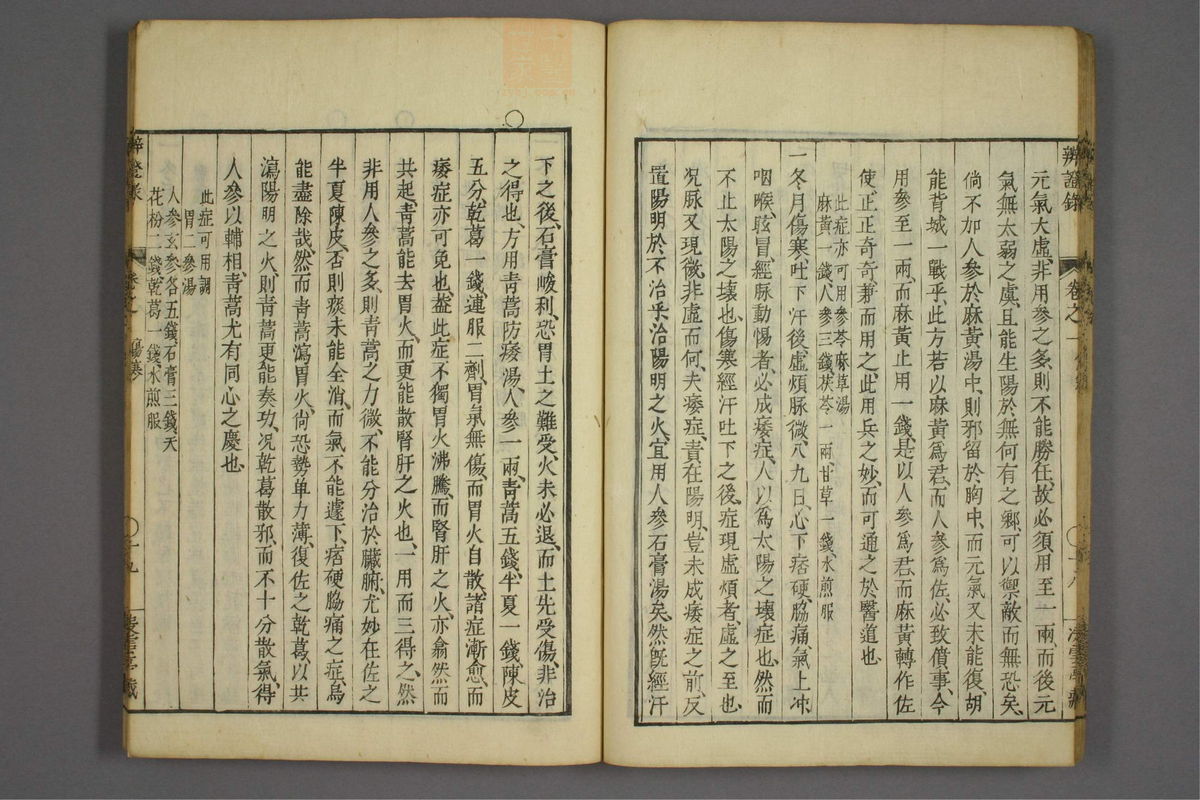 元氣大虛、非用參之多、則不能勝任、故必須用至一兩、而後元
氣無太弱之虞、且能生陽於無何有之鄉、可以禦敵而無恐矣、
倘不加人參於麻黃湯中、則邪留於胸中、而元氣又未能復、胡
能背城一戰乎、此方若以麻黃爲君、而人參爲佐、必致僨事、今
用參至一兩、而麻黃止用一錢、是以人參爲君、而麻黃轉作佐
使、正正奇奇、兼而用之、此用兵之妙、而可通之於醫道也
此症亦可用參苓麻草湯
麻黃一錢人參三錢茯苓一兩甘草一錢水煎服
一冬月傷寒、吐下汗後、虛煩脉微、八九日、心下痞硬、脇痛、氣上冲
咽喉、眩冒、經脉動惕者、必成痿症、人以爲太陽之壞症也、然而
不止太陽之壞也、傷寒經汗吐下之後、症現虛煩者、虛之至也
况脉又現微、非虛而何、夫痿症、責在陽明、豈未成痿症之前、反
置陽明於不治乎、治陽明之火、宜用人參石膏湯矣、然旣經汗
辨證錄 卷之一
下之後、石膏峻利、恐胃土之難受、火未必退、而土先受傷、非治
之得也、方用靑蒿防痿湯、人參一兩、靑蒿五錢、半夏一錢、陳皮
五分、乾葛一錢、連服二劑、胃氣無傷、而胃火自散、諸症漸愈、而
痿症亦可免也、葢此症不獨胃火沸騰、而腎肝之火、亦翕然而
共起、靑蒿能去胃火、而更能散腎肝之火也、一用而三得之、然
非用人參之多、則靑蒿之力微、不能分治於臟腑、尤妙在佐之
半夏陳皮、否則痰未能全消、而氣不能遽下、痞硬脇痛之症、烏
能盡除哉、然而靑蒿瀉胃火、尙恐勢单力薄、復佐之乾葛、以共
瀉陽明之火、則靑蒿更能奏功、况乾葛散邪、而不十分散氣、得
人參以輔相、靑蒿尤有同心之慶也
此症可用調
胃二參湯
人參玄參各五錢、石膏三錢、天
花粉二錢、乾葛一錢、水煎服